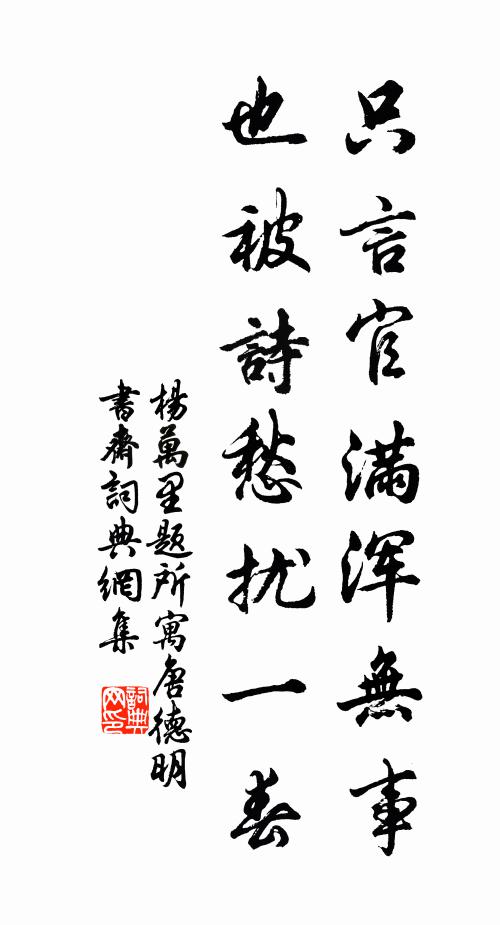 只言官满浑無事
也被詩愁扰一春
楊萬里題所寓唐德明
書齋詞典網集
詞典网印